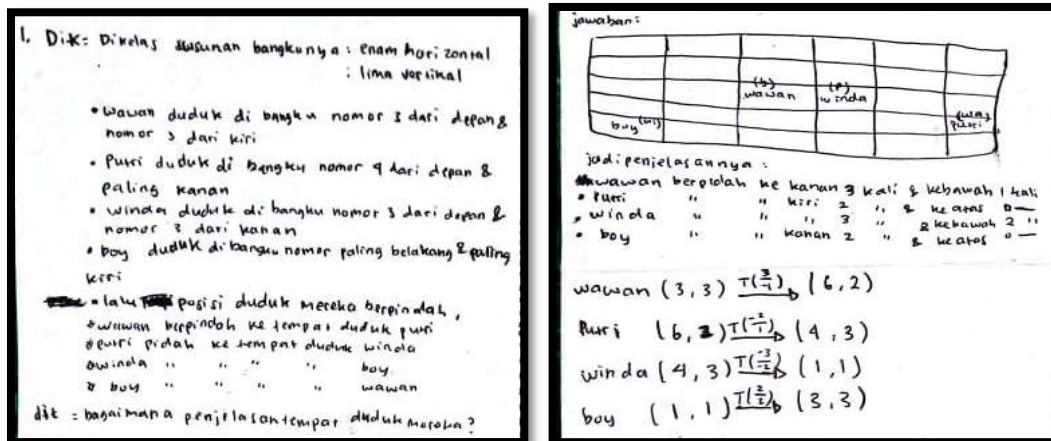 1. Dik = Dikelas susunan bangkunya : enam horizontal
: lima vertikal
• wawan duduk di bangku nomor 3 dari depan &
nomor 3 dari kiri
• Putri duduk di bangku nomor 4 dari depan &
paling kanan
• winda duduk di bangku nomor 3 dari depan &
nomor 3 dari kanan
• boy duduk di bangku nomor paling belakang & paling
kiri
• lalu posisi duduk mereka berpindah,
* wawan berpindah ke tempat duduk putri
* putri pidah ke tempat duduk winda
* winda " " " " boy
* boy " " " " wawan
dit = bagaimana penjelasan tempat duduk mereka?
jawaban :
(b) (P)
wawan winda
boy (wi) (wa)
Putri
jadi penjelasannya :
wawan berpidah ke kanan 3 kali & kebawah 1 kali
• Putri " " kiri 2 " & ke atas
• winda " " " 3 " & kebawah 2 "
• boy " " kanan 2 " & ke atas
wawan (3,3) T(3 -1) (6,2)
Putri (6,2) T(-2 1) (4,3)
winda (4,3) T(-3 -2) (1,1)
boy (1,1) T(2 2) (3,3)